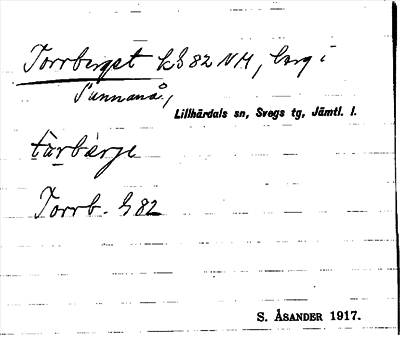 Torrberget kS 82 NM, berg i
Sunnanå,
Lillhärdals sn, Svegs tg, Jämtl. l.
tàrbærje
Torrb. S 82
S. ÅSANDER 1917.